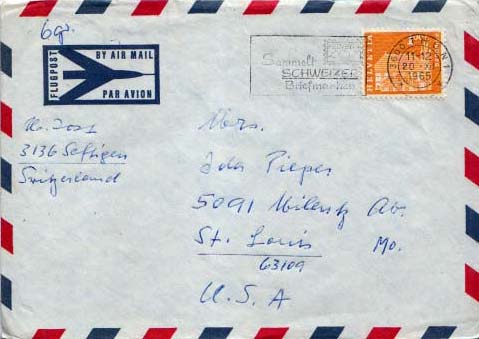 6gr.
FLUGPOST
BY AIR MAIL
PAR AVION
Sammelt
SCHWEIZER
Briefmarken
HELVETIA
11-12
20
1965
3136 Seftigen
Switzerland
Mrs.
Ida Pieper
5091 Milentz Av.
St. Louis Mo.
63109
U.S.A